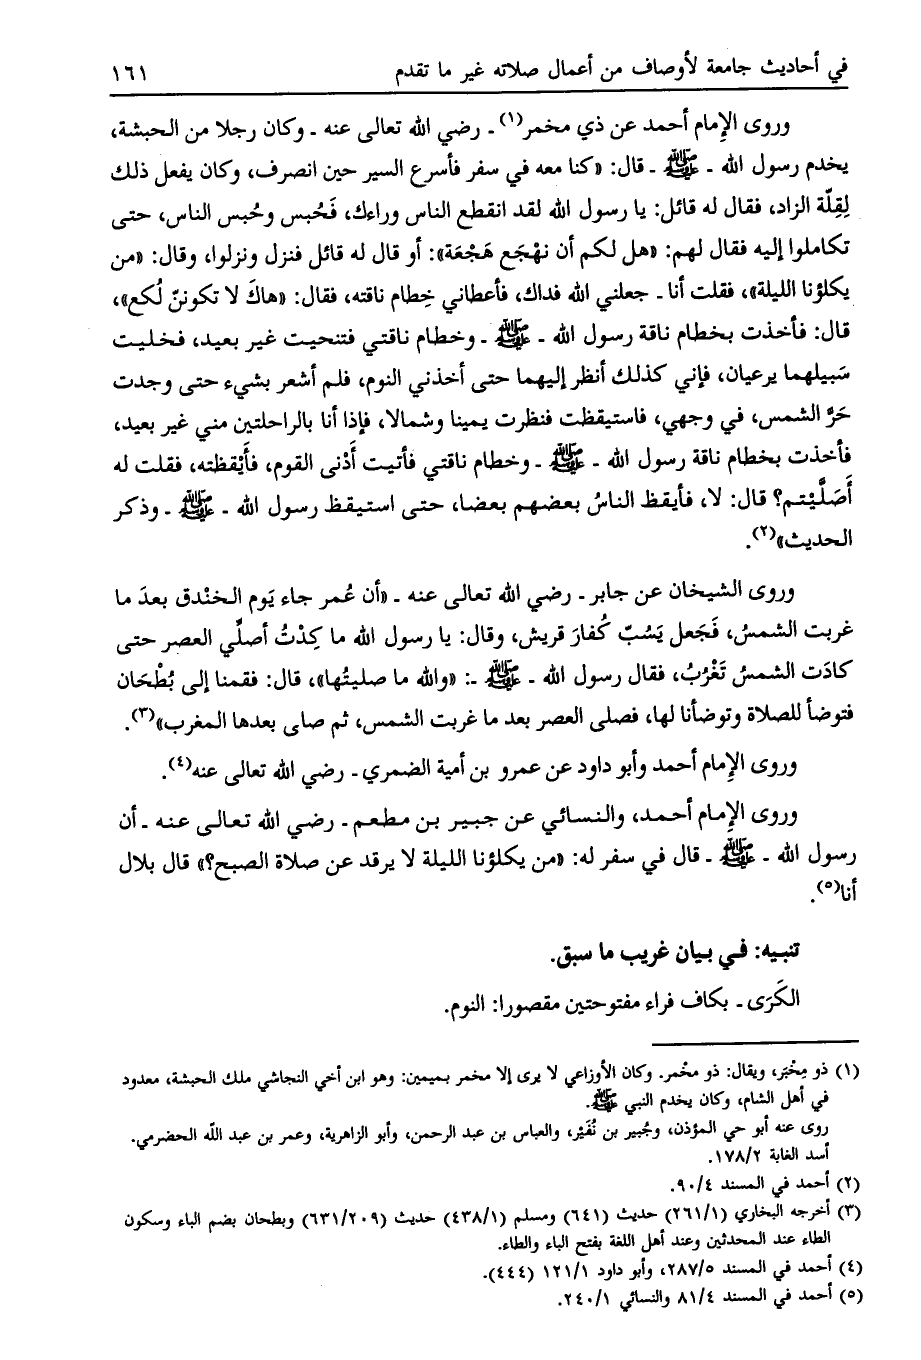 في أحاديث جامعة لأوصاف من أعمال صلاته غير ما تقدم ١٦١
وروى الإمام أحمد عن ذي مخمر(١) ـ رضي الله تعالى عنه ـ وكان رجلا من الحبشة،
يخدم رسول الله ـ ﷺ ـ قال: «كنا معه في سفر فأسرع السير حين انصرف، وكان يفعل ذلك
لِقِلّة الزاد، فقال له قائل: يا رسول الله لقد انقطع الناس وراءك، فَحُبس وحُبس الناس، حتى
تكاملوا إليه فقال لهم: «هل لكم أن نهْجَع هَجْعَة»: أو قال له قائل فنزل ونزلوا، وقال: «من
يكلؤنا الليلة»، فقلت أنا ـ جعلني الله فداك، فأعطاني خِطام ناقته، فقال: «هاكَ لا تكوننّ لُكع»،
قال: فأخذت بخطام ناقة رسول الله ـ ﷺ ـ وخطام ناقتي فتنحيت غير بعيد، فخليت
سَبيلهما يرعيان، فإني كذلك أنظر إليهما حتى أخذني النوم، فلم أشعر بشيء حتى وجدت
حَرَّ الشمس، في وجهي، فاستيقظت فنظرت يمينا وشمالا، فإذا أنا بالراحلتين مني غير بعيد،
فأخذت بخطام ناقة رسول الله ـ ﷺ ـ وخطام ناقتي فأتيت أَدْنى القوم، فأَيْقظته، فقلت له
أَصَلَّيْتم؟ قال: لا، فأيقظ الناسُ بعضهم بعضا، حتى استيقظ رسول الله ـ ﷺ ـ وذكر
الحديث»(٢).
وروى الشيخان عن جابر ـ رضي الله تعالى عنه ـ «أن عُمر جاء يَوم الخنْدق بعدَ ما
غربت الشمسُ، فَجَعل يَسُبّ كُفارَ قريش، وقال: يا رسول الله ما كِدْتُ أصلّي العصر حتى
كادَت الشمسُ تَغْرُبُ، فقال رسول الله ـ ﷺ ـ: «والله ما صليتُها»، قال: فقمنا إلى بُطْحَان
فتوضأ للصلاة وتوضأنا لها، فصلى العصر بعد ما غربت الشمس، ثم صلى بعدها المغرب»(٣).
وروى الإمام أحمد وأبو داود عن عمرو بن أمية الضمري ـ رضي الله تعالى عنه(٤).
وروى الإمام أحمد، والنسائي عن جبير بن مطعم ـ رضي الله تعالى عنه ـ أن
رسول الله ـ ﷺ ـ قال في سفر له: «من يكلؤنا الليلة لا يرقد عن صلاة الصبح؟» قال بلال
أنا(٥).
تنبيه: في بيان غريب ما سبق.
الكَرَى ـ بكاف فراء مفتوحتين مقصورا: النوم.
(١) ذو مِخْبَر، ويقال: ذو مخْمر. وكان الأوزاعي لا يرى إلا مخمر بميمين: وهو ابن أخي النجاشي ملك الحبشة، معدود
في أهل الشام، وكان يخدم النبي ﷺ.
روى عنه أبو حي المؤذن، وجُبير بن نُفَيْر، والعباس بن عبد الرحمن، وأبو الزاهرية، وعمر بن عبد الله الحضرمي.
أسد الغابة ١٧٨/٢.
(٢) أحمد في المسند ٩٠/٤.
(٣) أخرجه البخاري (٢٦١/١) حديث (٦٤١) ومسلم (٤٣٨/١) حديث (٦٣١/٢٠٩) وبطحان بضم الباء وسكون
الطاء عند المحدثين وعند أهل اللغة بفتح الباء والطاء.
(٤) أحمد في المسند ٢٨٧/٥، وأبو داود ١٢١/١ (٤٤٤).
(٥) أحمد في المسند ٨١/٤ والنسائي ٢٤٠/١.